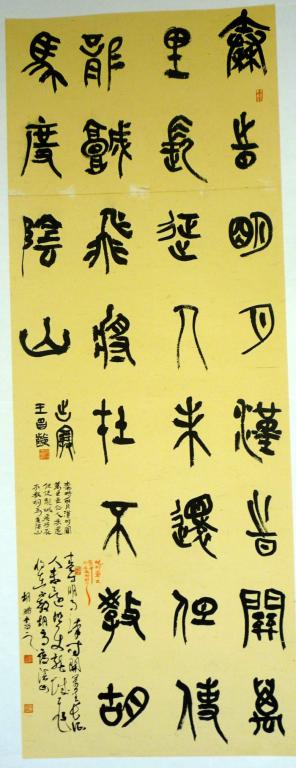 秦時明月漢時關萬
里長征人未還但使
龍城飛將在不教胡
馬度陰山
出塞
王昌齡
秦時明月漢時關
萬里長征人未還
但使龍城飛將在
不教胡馬度陰山
秦時明月漢時關萬里長征
人未還但使龍城飛
將在不教胡馬度陰山